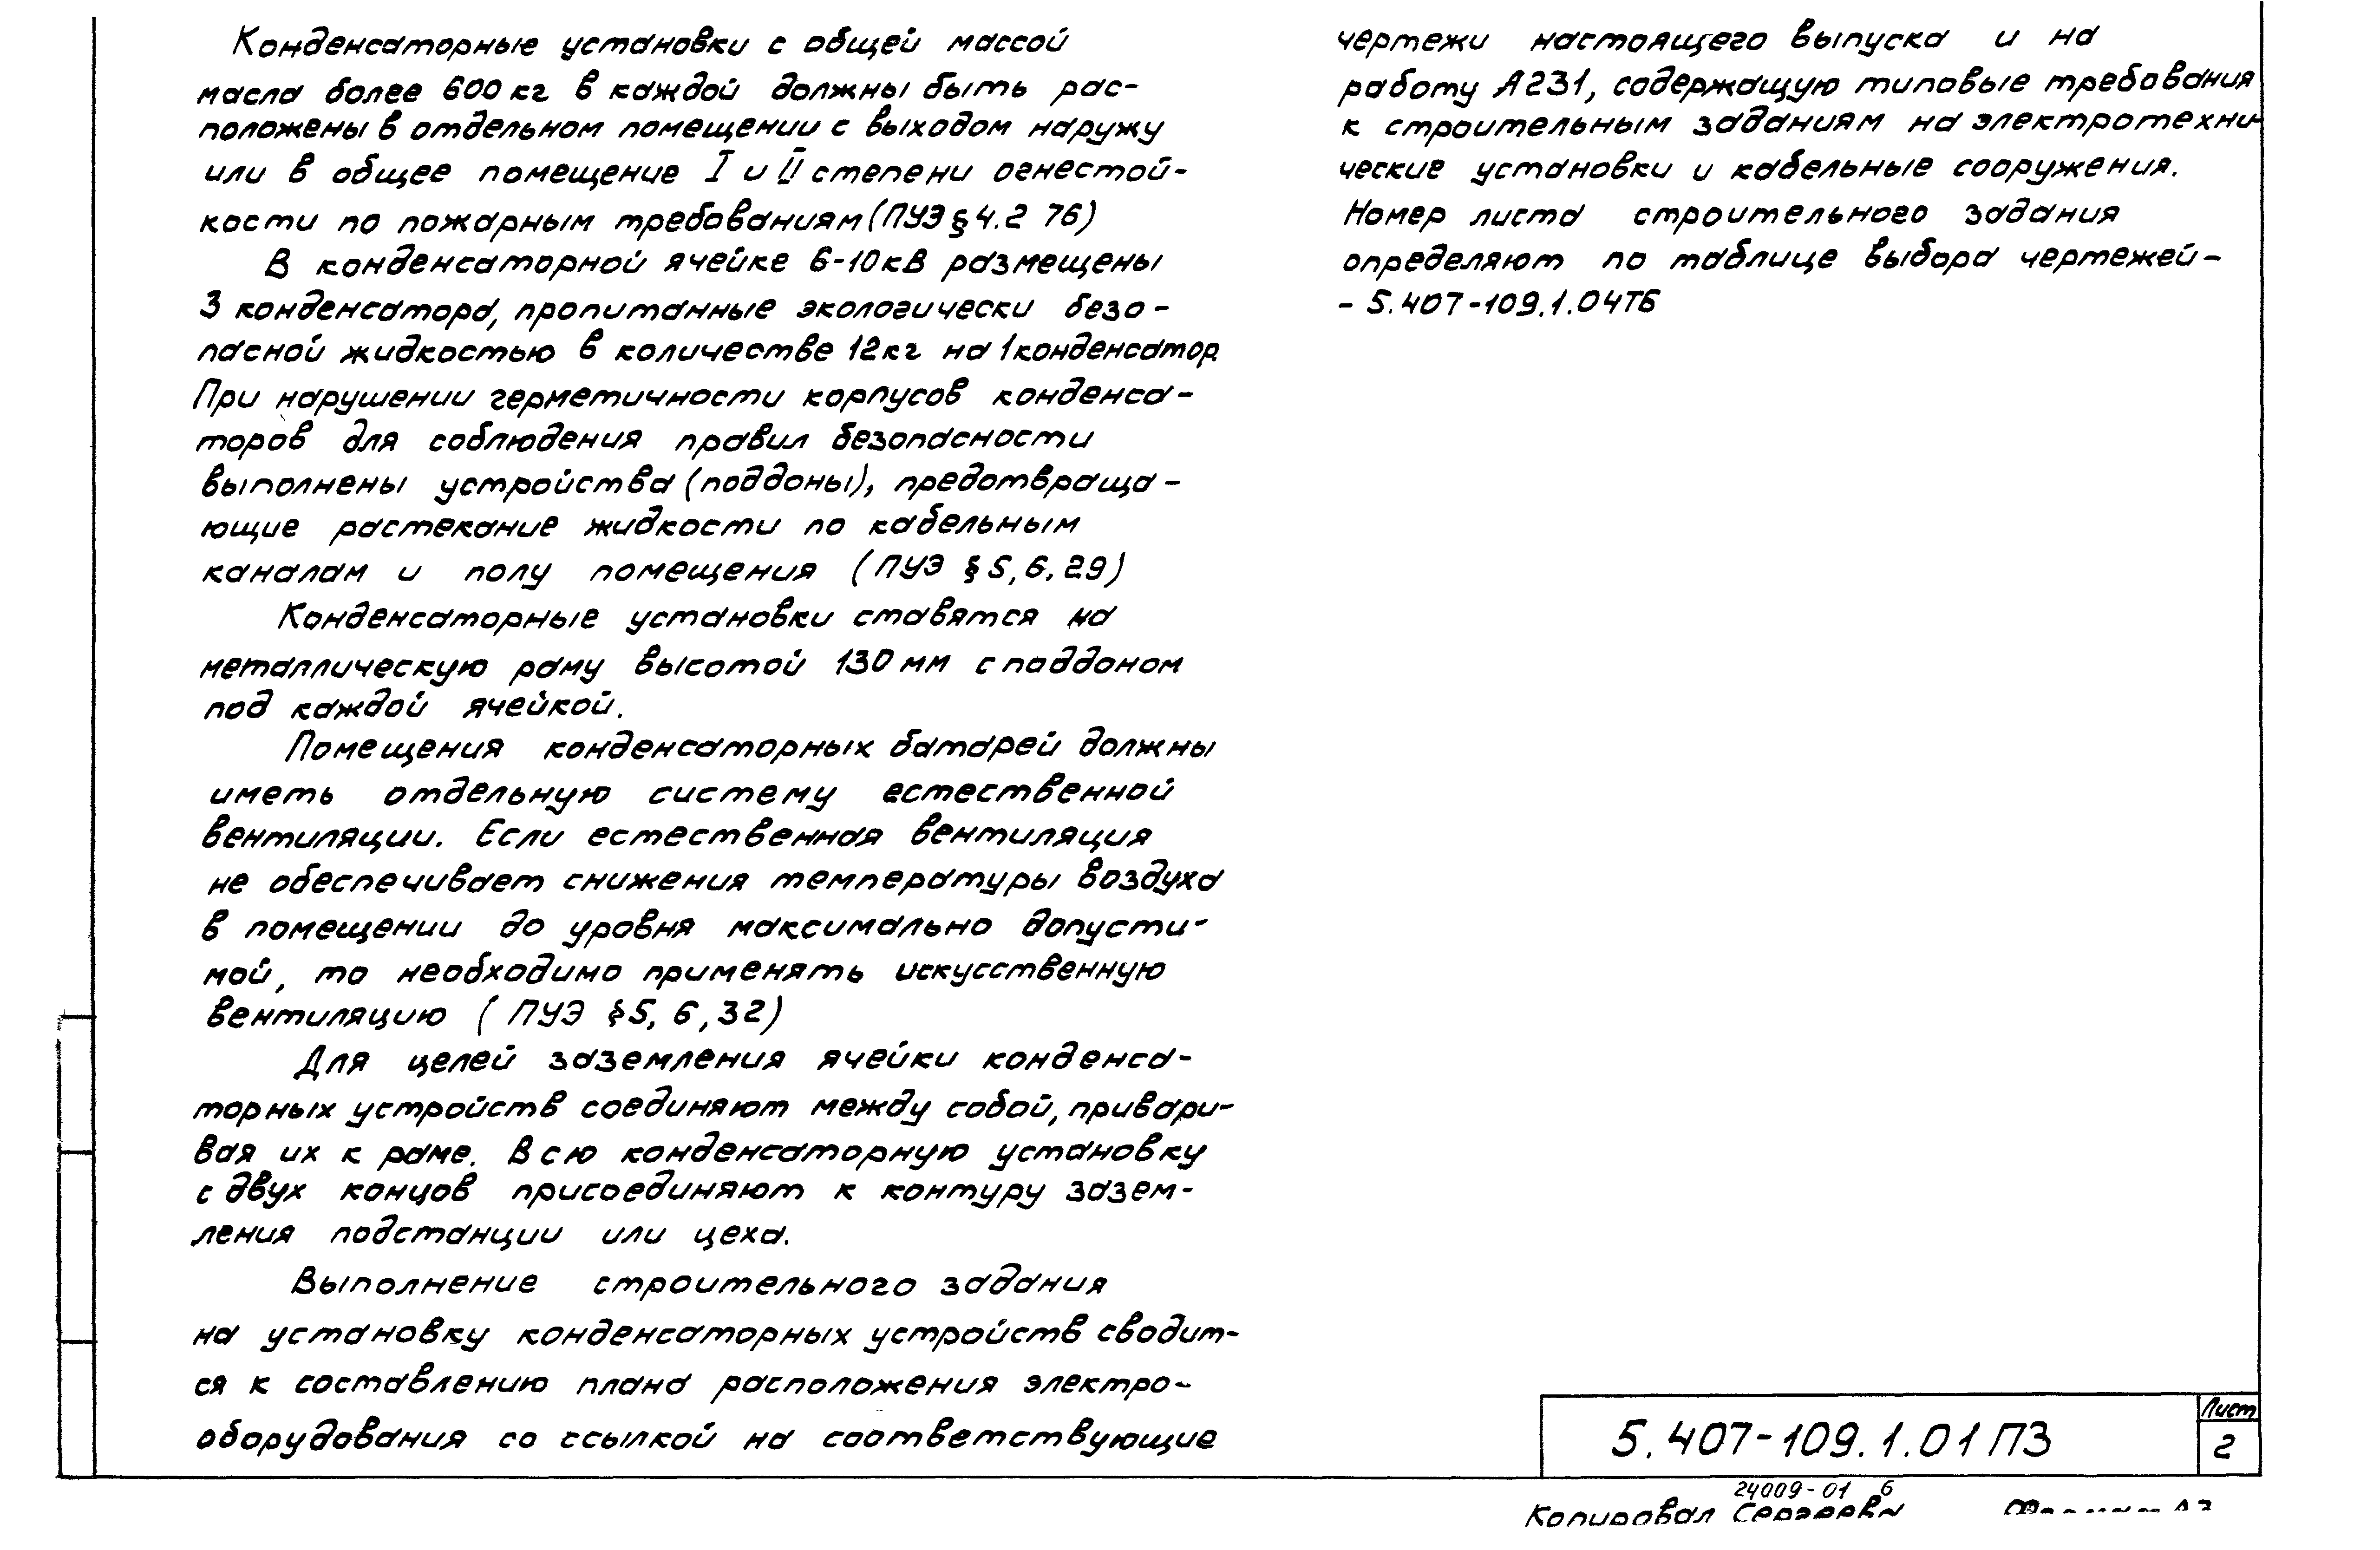 Конденсаторные установки с общей массой
масла более 600 кг в каждой должны быть рас-
положены в отдельном помещении с выходом наружу
или в общее помещение I и II степени огнестой-
кости по пожарным требованиям (ПУЭ § 4.2 76)
В конденсаторной ячейке 6-10 кВ размещены
3 конденсатора, пропитанные экологически безо-
пасной жидкостью в количестве 12 кг на 1 конденсатор.
При нарушении герметичности корпусов конденса-
торов для соблюдения правил безопасности
выполнены устройства (поддоны), предотвраща-
ющие растекание жидкости по кабельным
каналам и полу помещения (ПУЭ § 5, 6. 29)
Конденсаторные установки ставятся на
металлическую раму высотой 130 мм с поддоном
под каждой ячейкой.
Помещения конденсаторных батарей должны
иметь отдельную систему естественной
вентиляции. Если естественная вентиляция
не обеспечивает снижения температуры воздуха
в помещении до уровня максимально допусти-
мой, то необходимо применять искусственную
вентиляцию (ПУЭ §5, 6, 32)
Для целей заземления ячейки конденса-
торных устройств соединяют между собой, привари-
вая их к раме. Всю конденсаторную установку
с двух концов присоединяют к контуру зазем-
ления подстанции или цеха.
Выполнение строительного задания
на установку конденсаторных устройств сводит-
ся к составлению плана расположения электро-
оборудования со ссылкой на соответствующие
чертежи настоящего выпуска и на
работу А231, содержащую типовые требования
к строительным заданиям на электротехни-
ческие установки и кабельные сооружения.
Номер листа строительного задания
определяют по таблице выбора чертежей-
- 5.407-109.1.04ТБ
5.407-109.1.01ПЗ
Лист
2
24009-01 6
Копировал Сергеева Формат А3